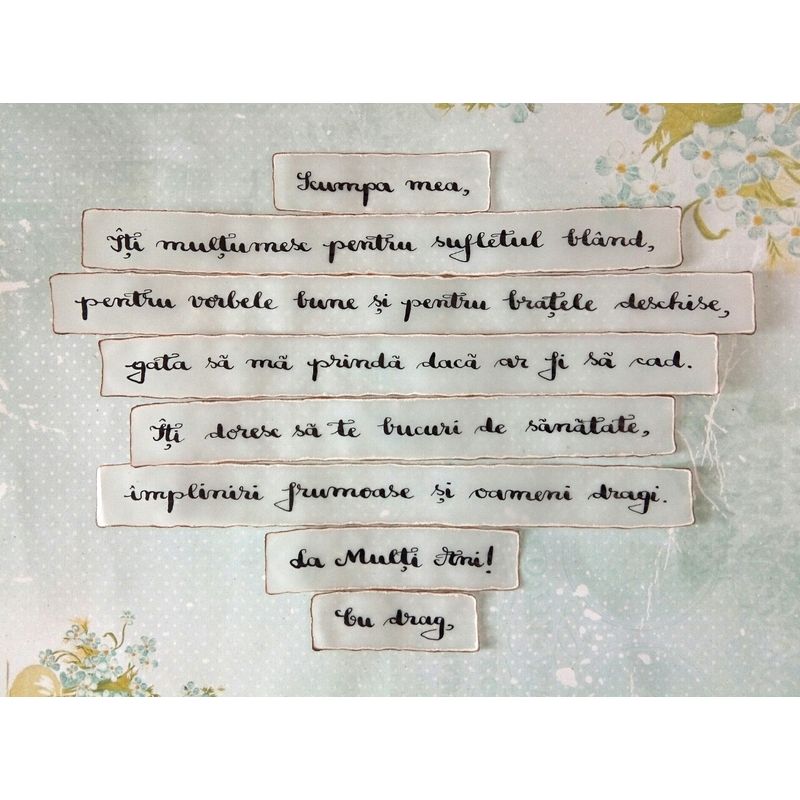 Scumpa mea,
Îți mulțumesc pentru sufletul blând,
pentru vorbele bune și pentru brațele deschise,
gata să mă prindă dacă ar fi să cad.
Îți doresc să te bucuri de sănătate,
împliniri frumoase și oameni dragi.
La Mulți Ani!
Cu drag,